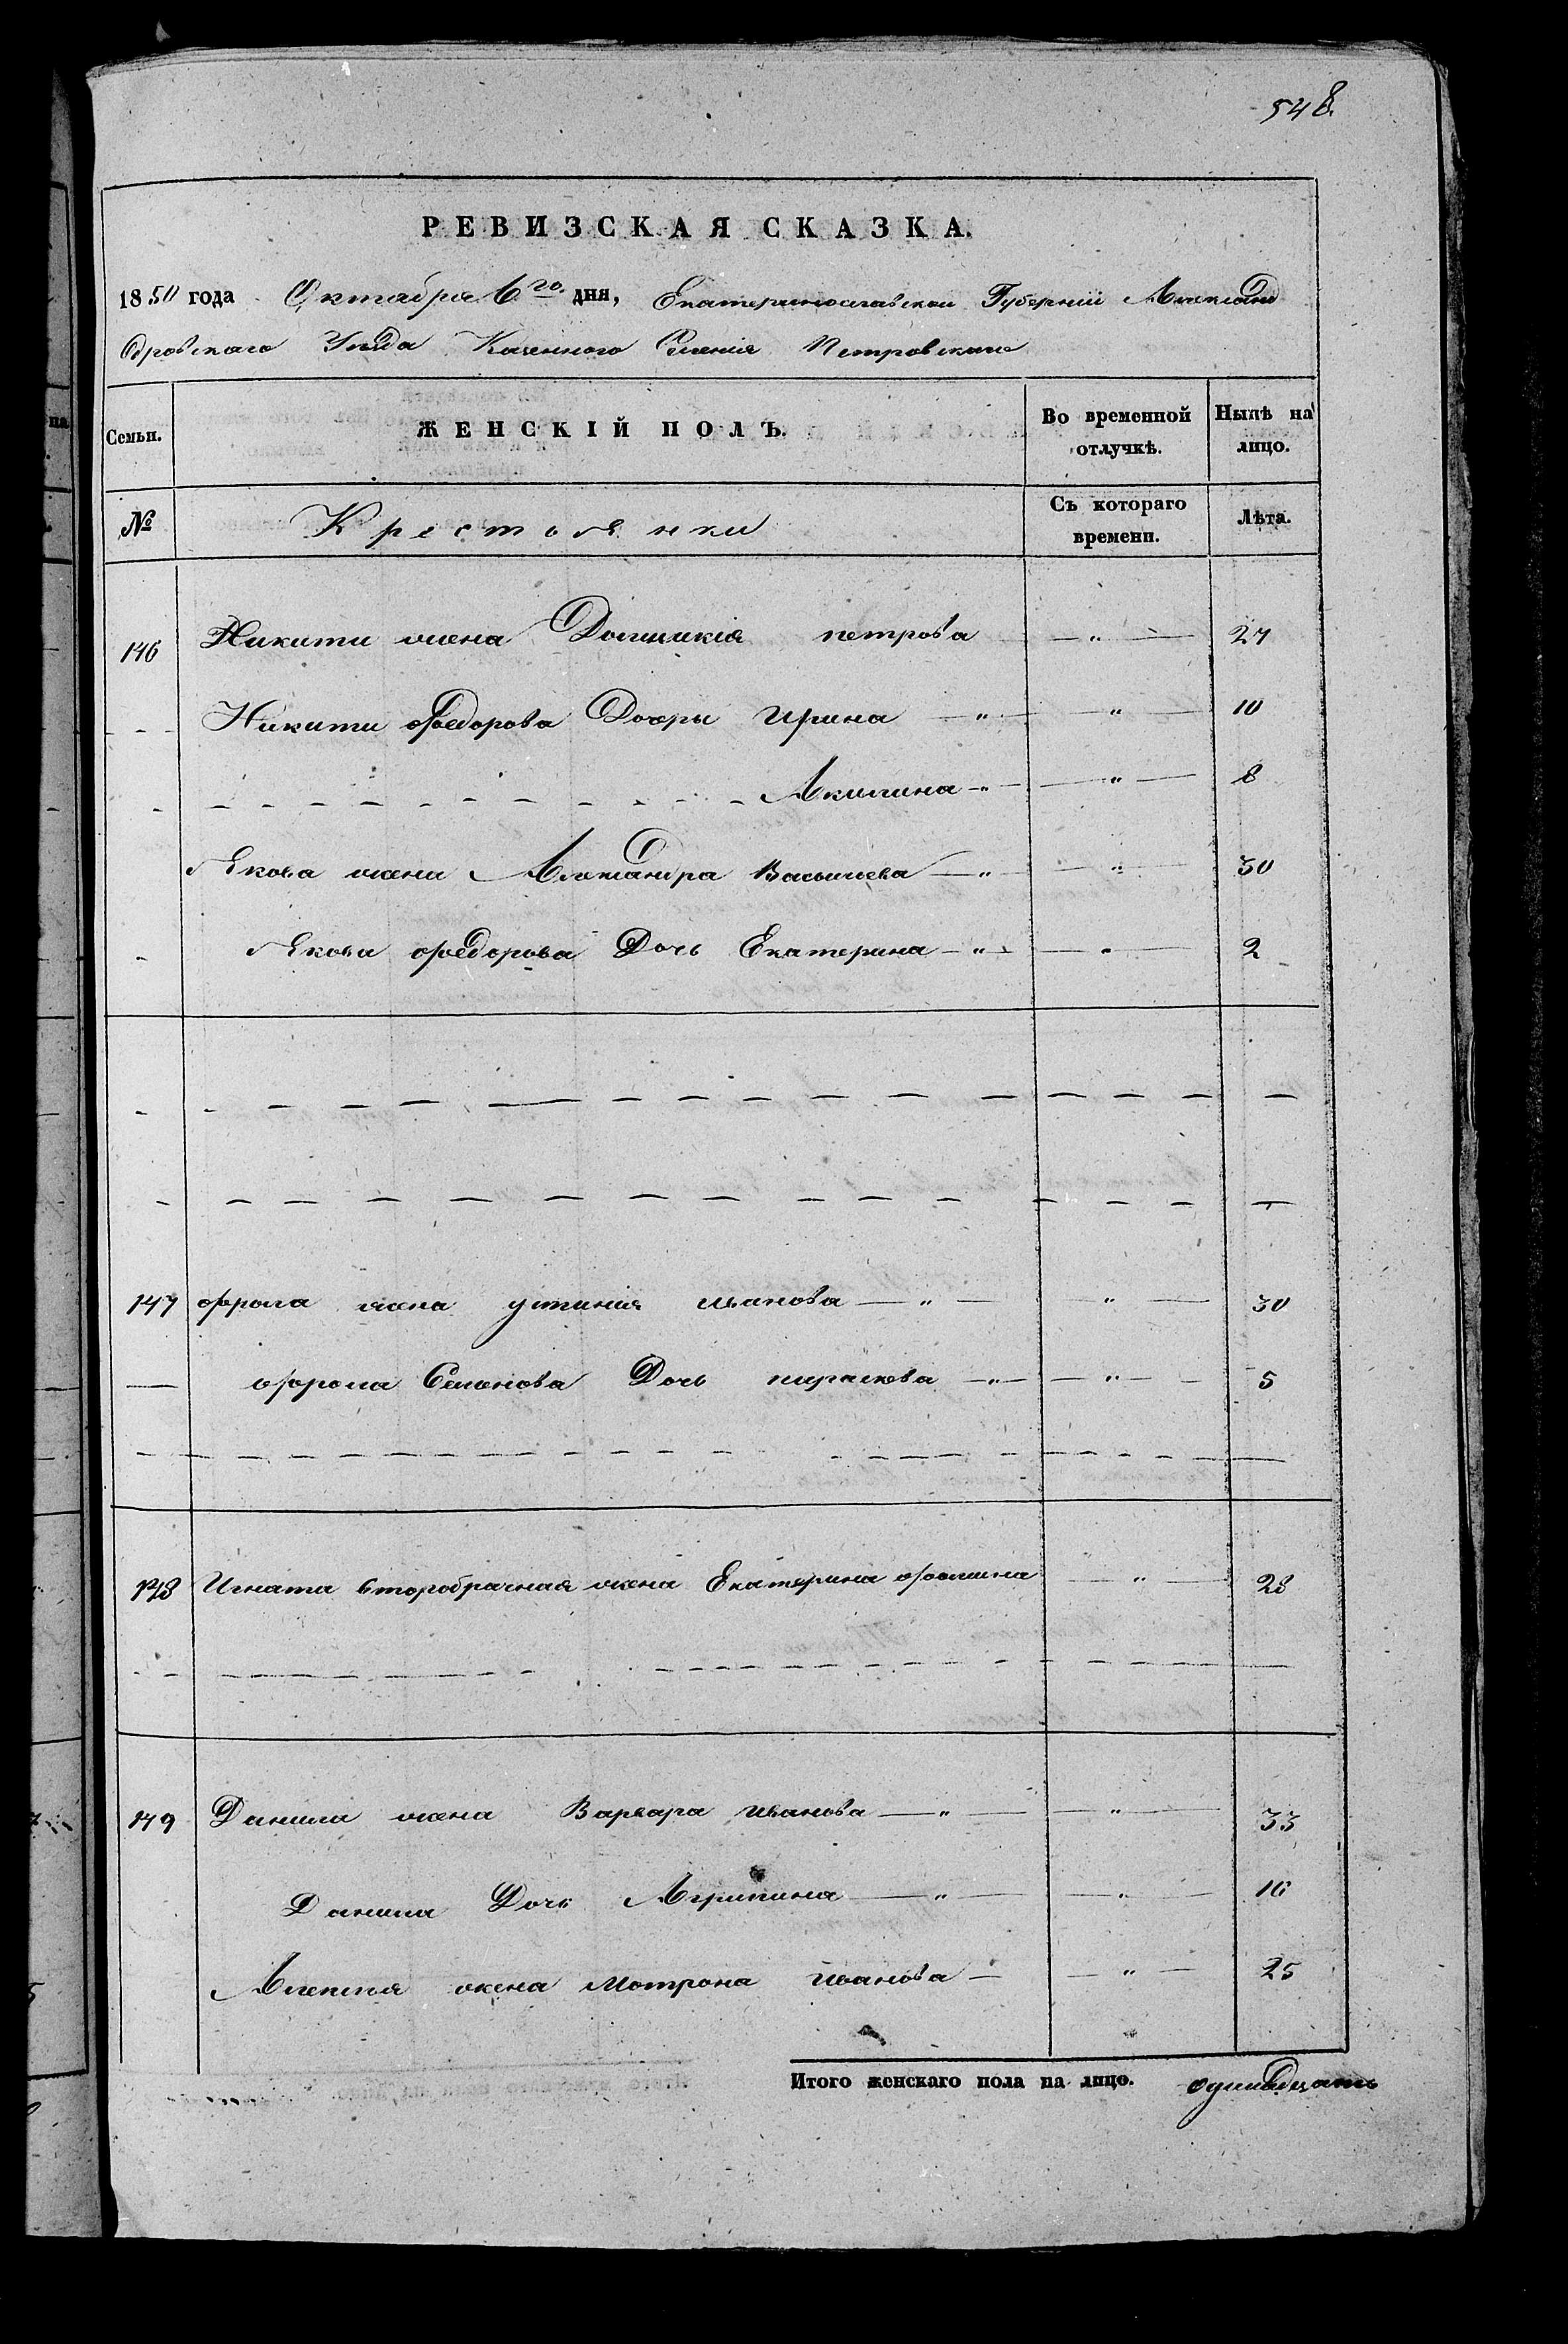 548.
РЕВИЗСКАЯ СКАЗКА.
1850 года Октября 6го дня, Екатеринославской Губернии Алексан
дровского Уезда Казенного Селения Петровского
Семьи. ЖЕНСКІЙ ПОЛЪ. Во временной отлучкѣ. Нынѣ на лицо.
№ Крестьянки Съ котораго времени. Лѣта.
146 Никити жена Домникия петрова — „ — 27
Никити федорова Дочери Ирина — „ — „ — 10
Акилина — „ — „ — 8
Якова жена Александра Васильева — „ — „ — 30
Якова федорова Дочь Екатерина — „ — „ — 2
147 фрола жена устиния иванова — „ — „ — 30
фрола Семенова Дочь параскева — „ — „ — 5
148 Игната второбрачная жена Екатерина фомина — „ — 28
149 Данила жена Варвара иванова — „ — „ — 33
Данила Дочь Агрипина — „ — „ — 16
Алексея жена мотрона иванова — „ — 25
Итого женскаго пола на лицо. одинадцать